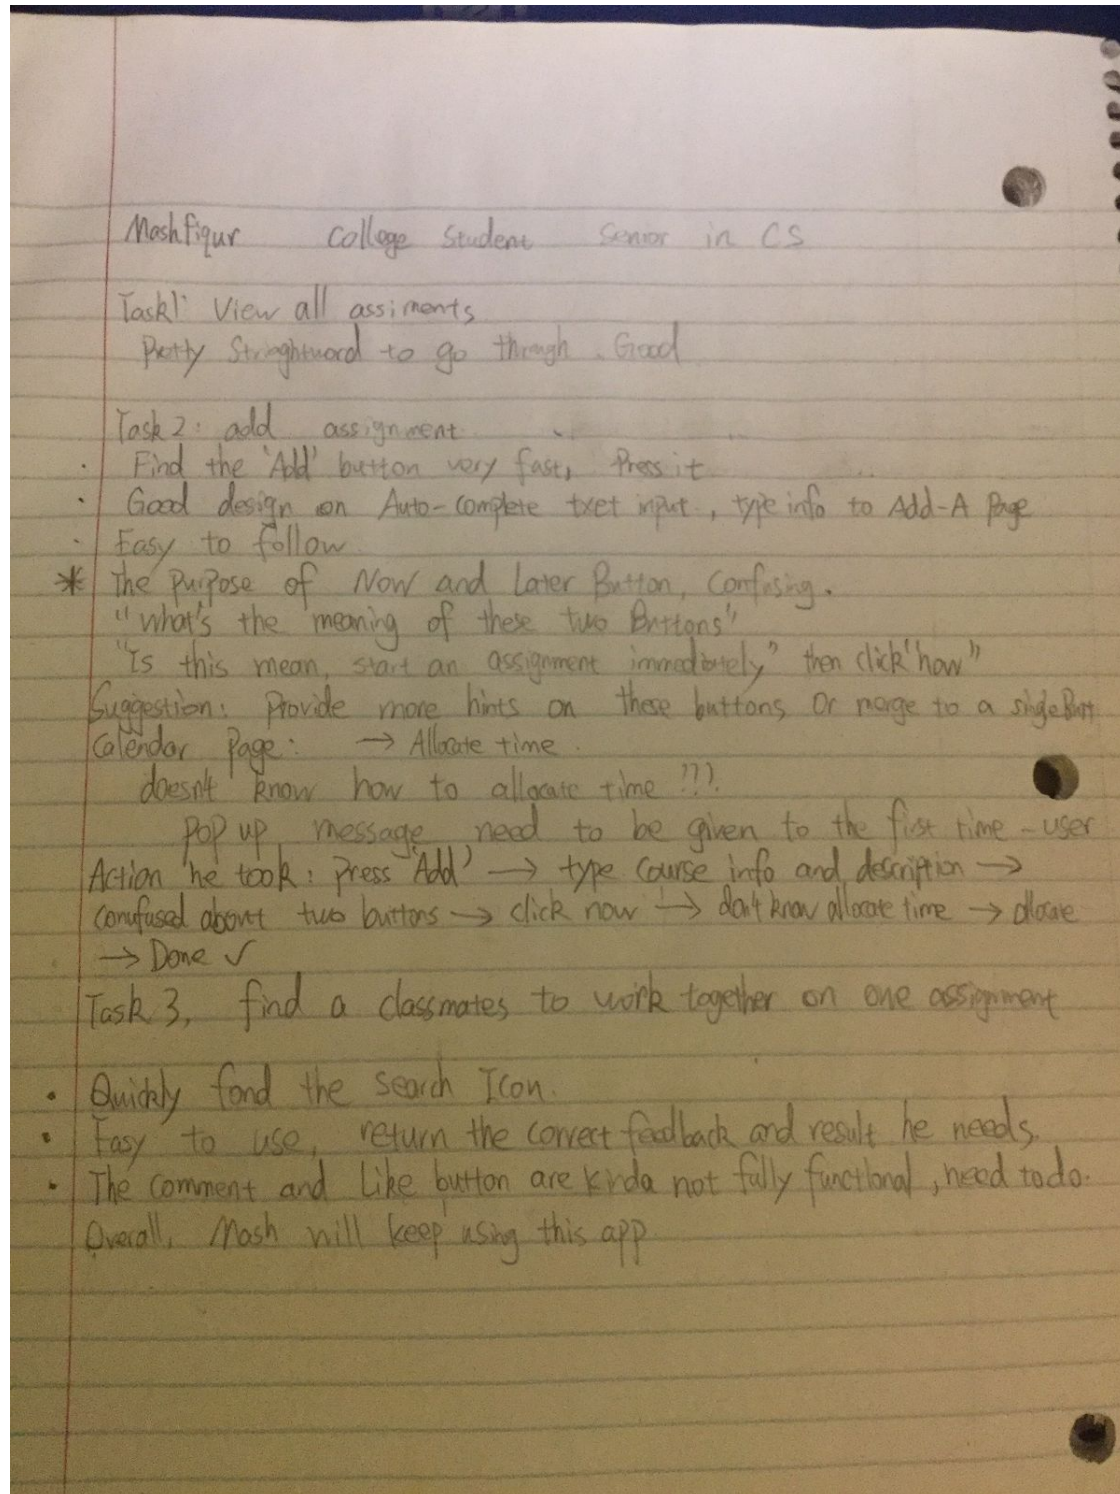 Mashfiqur College Student Senior in CS
Task1: View all assiments
Pretty Stringhtword to go through. Good
Task 2: add assignment
· Find the 'Add' button very fast, Press it
· Good design on Auto-complete txet input, type info to Add-A Page
· Easy to follow
* The Purpose of Now and Later Button, Confusing.
"What's the meaning of these two Buttons"
"Is this mean, start an assignment immediately" then click "now"
Suggestion: Provide more hints on these buttons, Or merge to a single
Calendar Page: → Allocate time.
doesn't know how to allocate time ???
POP up message need to be given to the first time-user
Action he took: press 'Add' → type course info and description →
confused about two buttons → click now → don't know allocate time → allocate
→ Done ✓
Task 3, find a classmates to work together on one assignment
• Quickly fond the search Icon.
• Easy to use, return the correct feedback and result he needs.
• The comment and Like button are kinda not fully functional, need to do.
Overall, Mash will keep using this app